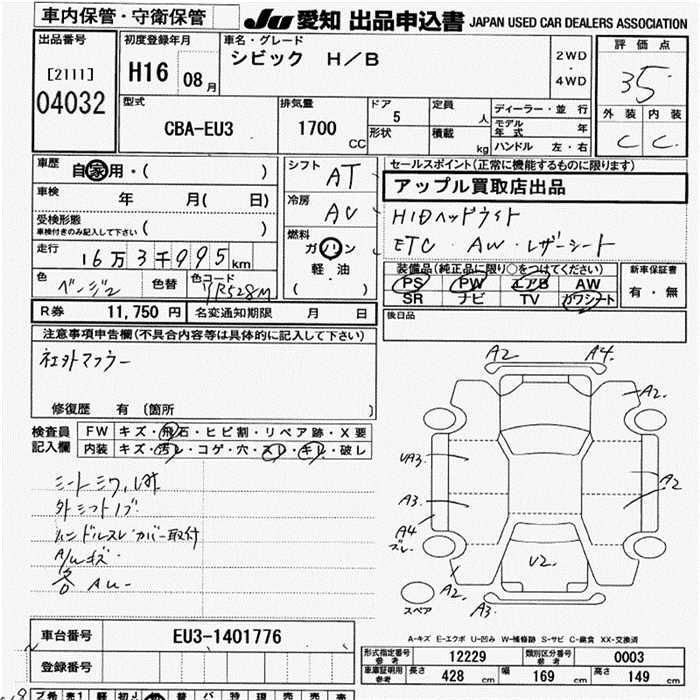 車内保管・守衛保管
JU 愛知 出品申込書 JAPAN USED CAR DEALERS ASSOCIATION
出品番号
[2111]
04032
初度登録年月
H16 08月
車名・グレード
シビック H/B
2WD
・
4WD
評価点
3.5
外装 内装
C C
型式
CBA-EU3
排気量
1700
CC
ドア
5
形状
定員
人
積載
kg
ディーラー・並行
モデル年式 年
ハンドル 左・右
車歴
自家用・( )
車検
年 月( 日)
受検形態
車検付きのみ記入して下さい ( )
走行
16万3千995km
色
ベージュ
色替
色コード
YR528M
シフト
AT
冷房
AC
燃料
ガソリン
軽油
( )
セールスポイント(正常に機能するものに限ります)
アップル買取店出品
HIDヘッドライト
ETC・AW・レザーシート
装備品(純正品に限り○をつけてください)
PS PW エアB AW
SR ナビ TV カワシート
新車保証書
有・無
後日品
R券 11,750 円 名変通知期限 月 日
注意事項申告欄(不具合内容等は具体的に記入して下さい)
社外マフラー
修復歴 有 〔箇所 〕
検査員
記入欄
FW キズ・飛石・ヒビ割・リペア跡・X要
内装 キズ・汚レ・コゲ・穴・スレ・キレ・破レ
外シフトノブ
ハンドルスレ カバー取付
A/Wキズ
A2 A4
A2
UA3
A3
A2
A4
ズレ
U2.
A2
A3
スペア
A-キズ E-エクボ U-凹み W-補修跡 S-サビ C-腐食 XX-交換済
車台番号 EU3-1401776
登録番号
形式指定番号
参考
12229
類別区分番号
参考
0003
車庫証明用
参考
長さ 428 cm 幅 169 cm 高さ 149 cm